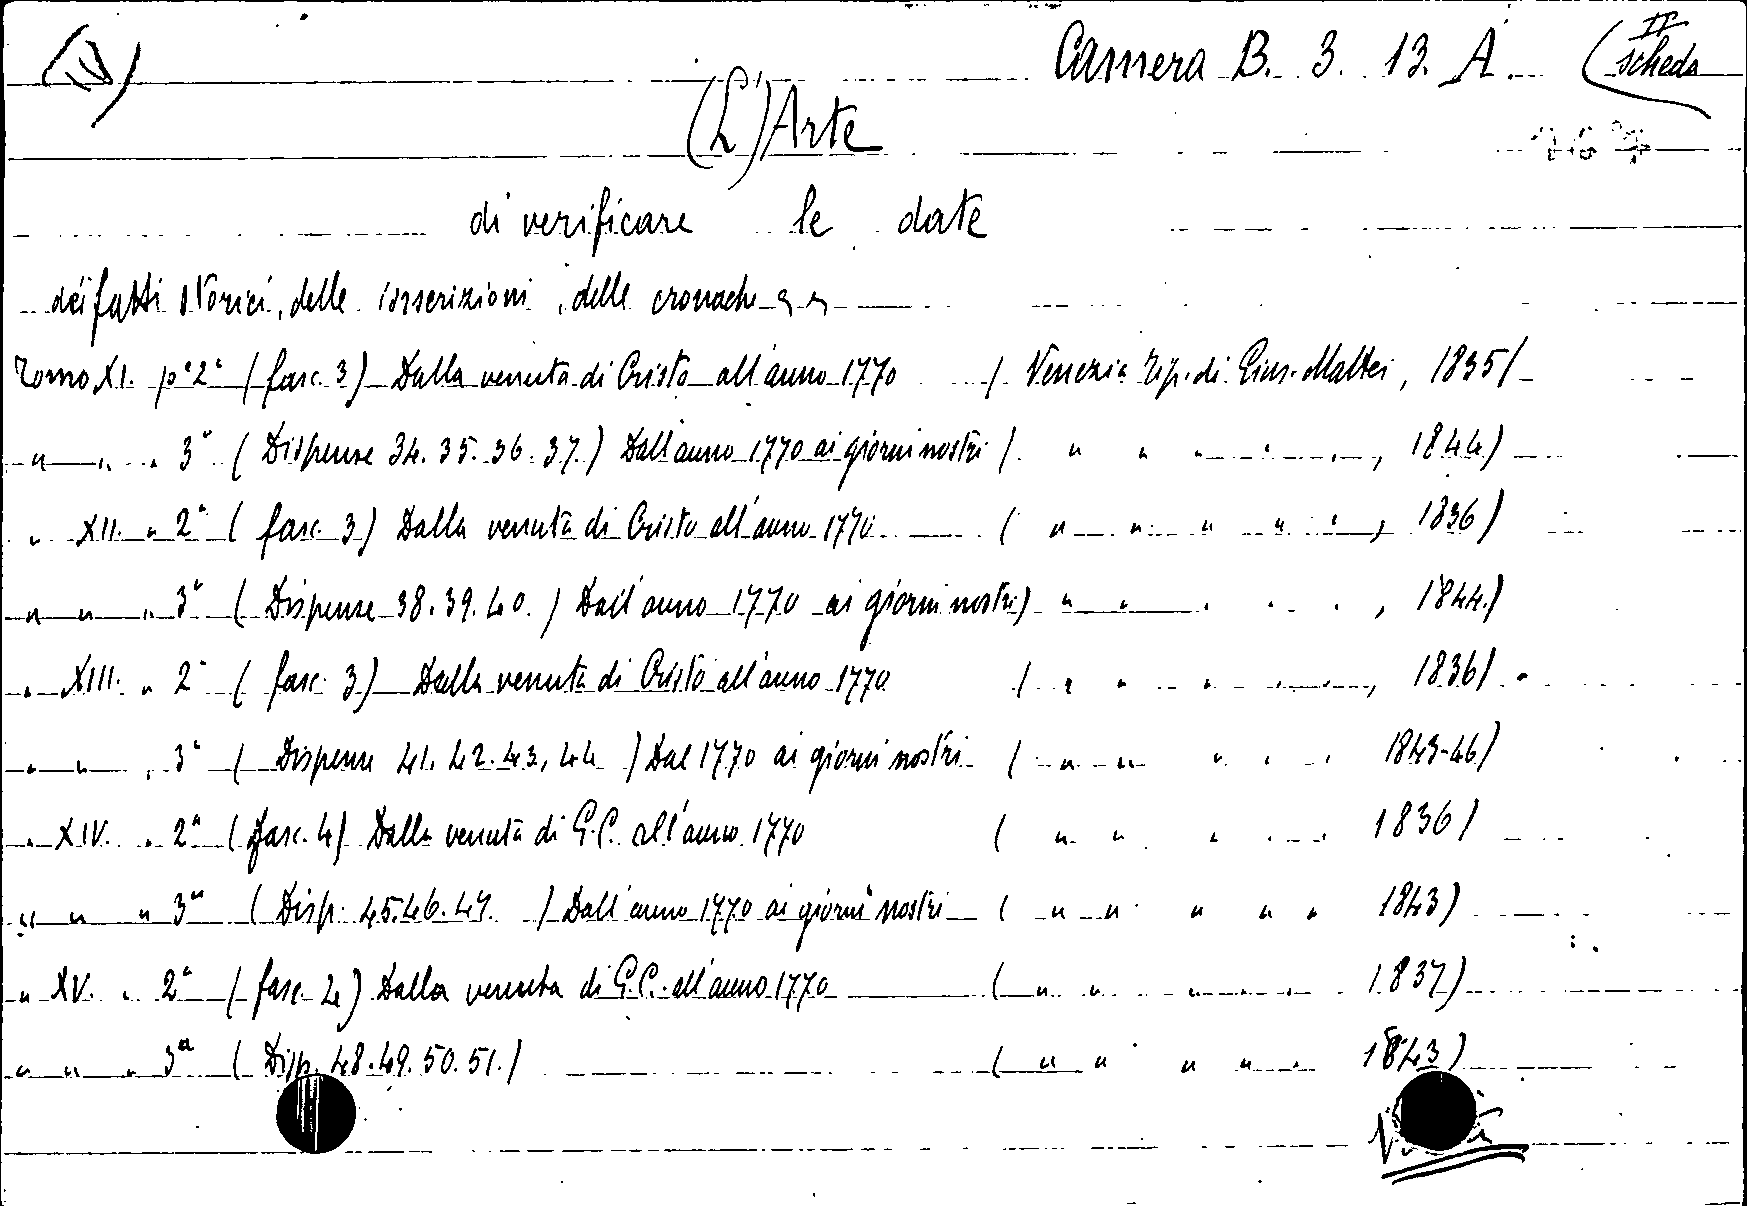 Camera B. 3. 13. A. (II scheda
(L')Arte
di verificare le date
dei fatti storici, delle isscrizioni, delle cronache
Tomo XI. pe 2a (fasc. 3) Dalla venuta di Cristo all'anno 1770 ( Venezia Tip. di Gius. Mattei, 1835)
" " " 3a (Dispense 34. 35. 36. 37.) Dall'anno 1770 ai giorni nostri ( " " " " ", 1844)
" XII. " 2a (fasc. 3) Dalla venuta di Cristo all'anno 1770 ( " " " " ", 1836)
" " " 3a (Dispense 38. 39. 40.) Dall'anno 1770 ai giorni nostri) " " " " ", 1844.)
" XIII. " 2a (fasc. 3) Dalla venuta di Cristo all'anno 1770 ( " " " " ", 1836)
" " " 3a (Dispense 41. 42. 43, 44) Dal 1770 ai giorni nostri ( " " " " " 1843-46)
" XIV. " 2a (fasc. 4) Dalla venuta di G.C. all'anno 1770 ( " " " " " 1836)
" " " 3a (Disp. 45.46.47.) Dall'anno 1770 ai giorni nostri ( " " " " " 1843)
" XV. " 2a (fasc. 4) Dalla venuta di G.C. all'anno 1770 ( " " " " " 1837)
" " " 3a (Disp. 48.49.50.51.) ( " " " " " 1843)